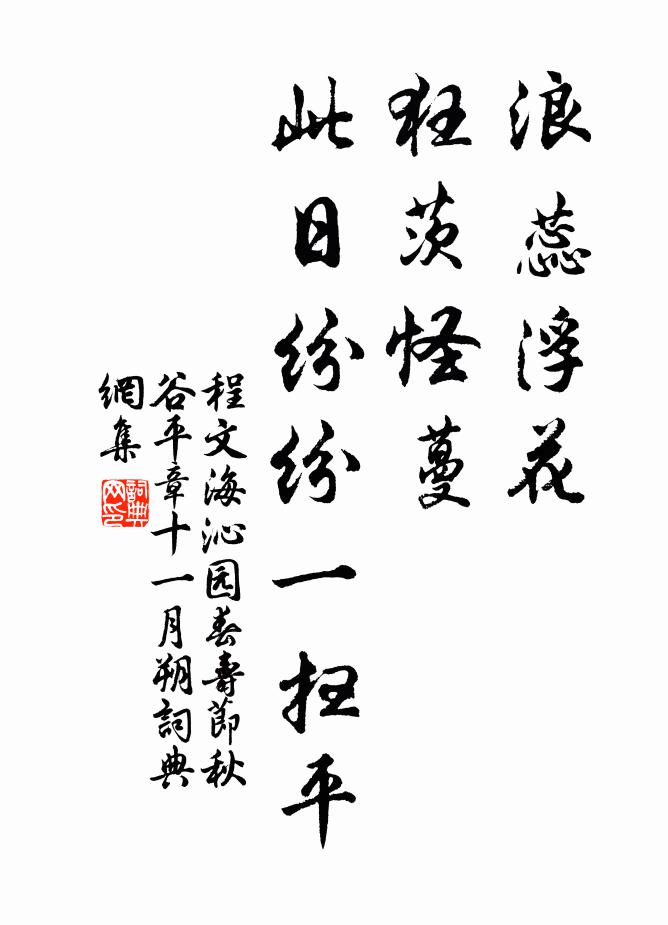 浪蕊浮花
狂茨怪蔓
此日纷纷一扫平
程文海沁园春寿節秋
谷平章十一月朔詞典
網集
詞典
网印